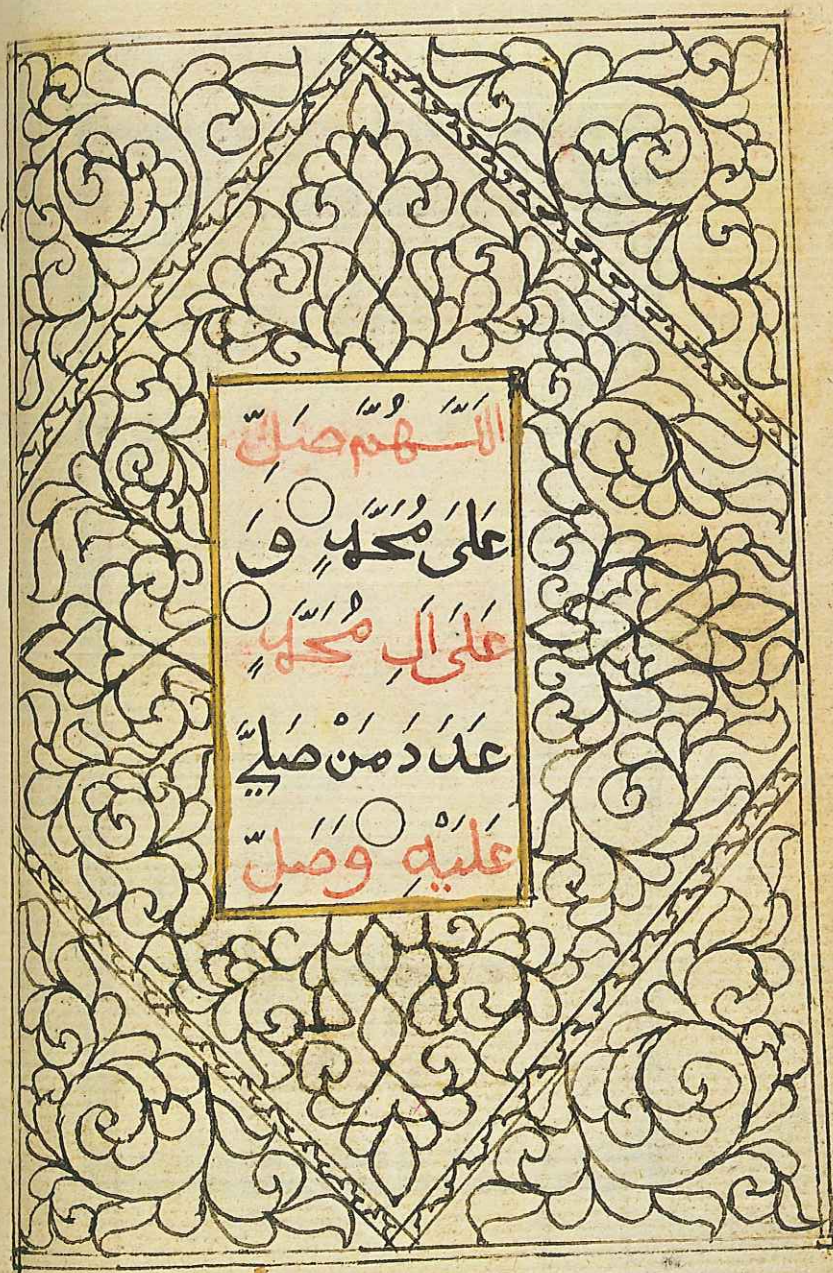 اَللَّهُمَّ صَلِّ
عَلَى مُحَمَّدٍ وَ
عَلَى اَلِ مُحَمَّدٍ
عَدَدَ مَنْ صَلَّي
عَلَيْهِ وَصَلِّ